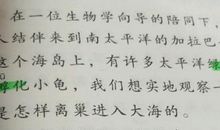 在一位生物学向导的陪同下
人结伴来到南太平洋的加拉巴
这个海岛上，有许多太平洋绿
孵化小龟，我们想实地观察一
是怎样离巢进入大海的。